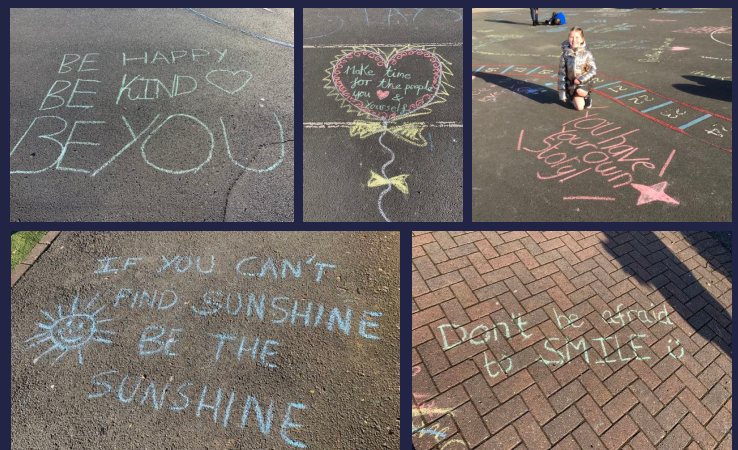 BE HAPPY
BE KIND
BE YOU
Make time
for the people
you & 
Yourself
You have
Your own
Story!
IF YOU CAN'T
FIND SUNSHINE
BE THE
SUNSHINE
Don't be afraid
to SMILE